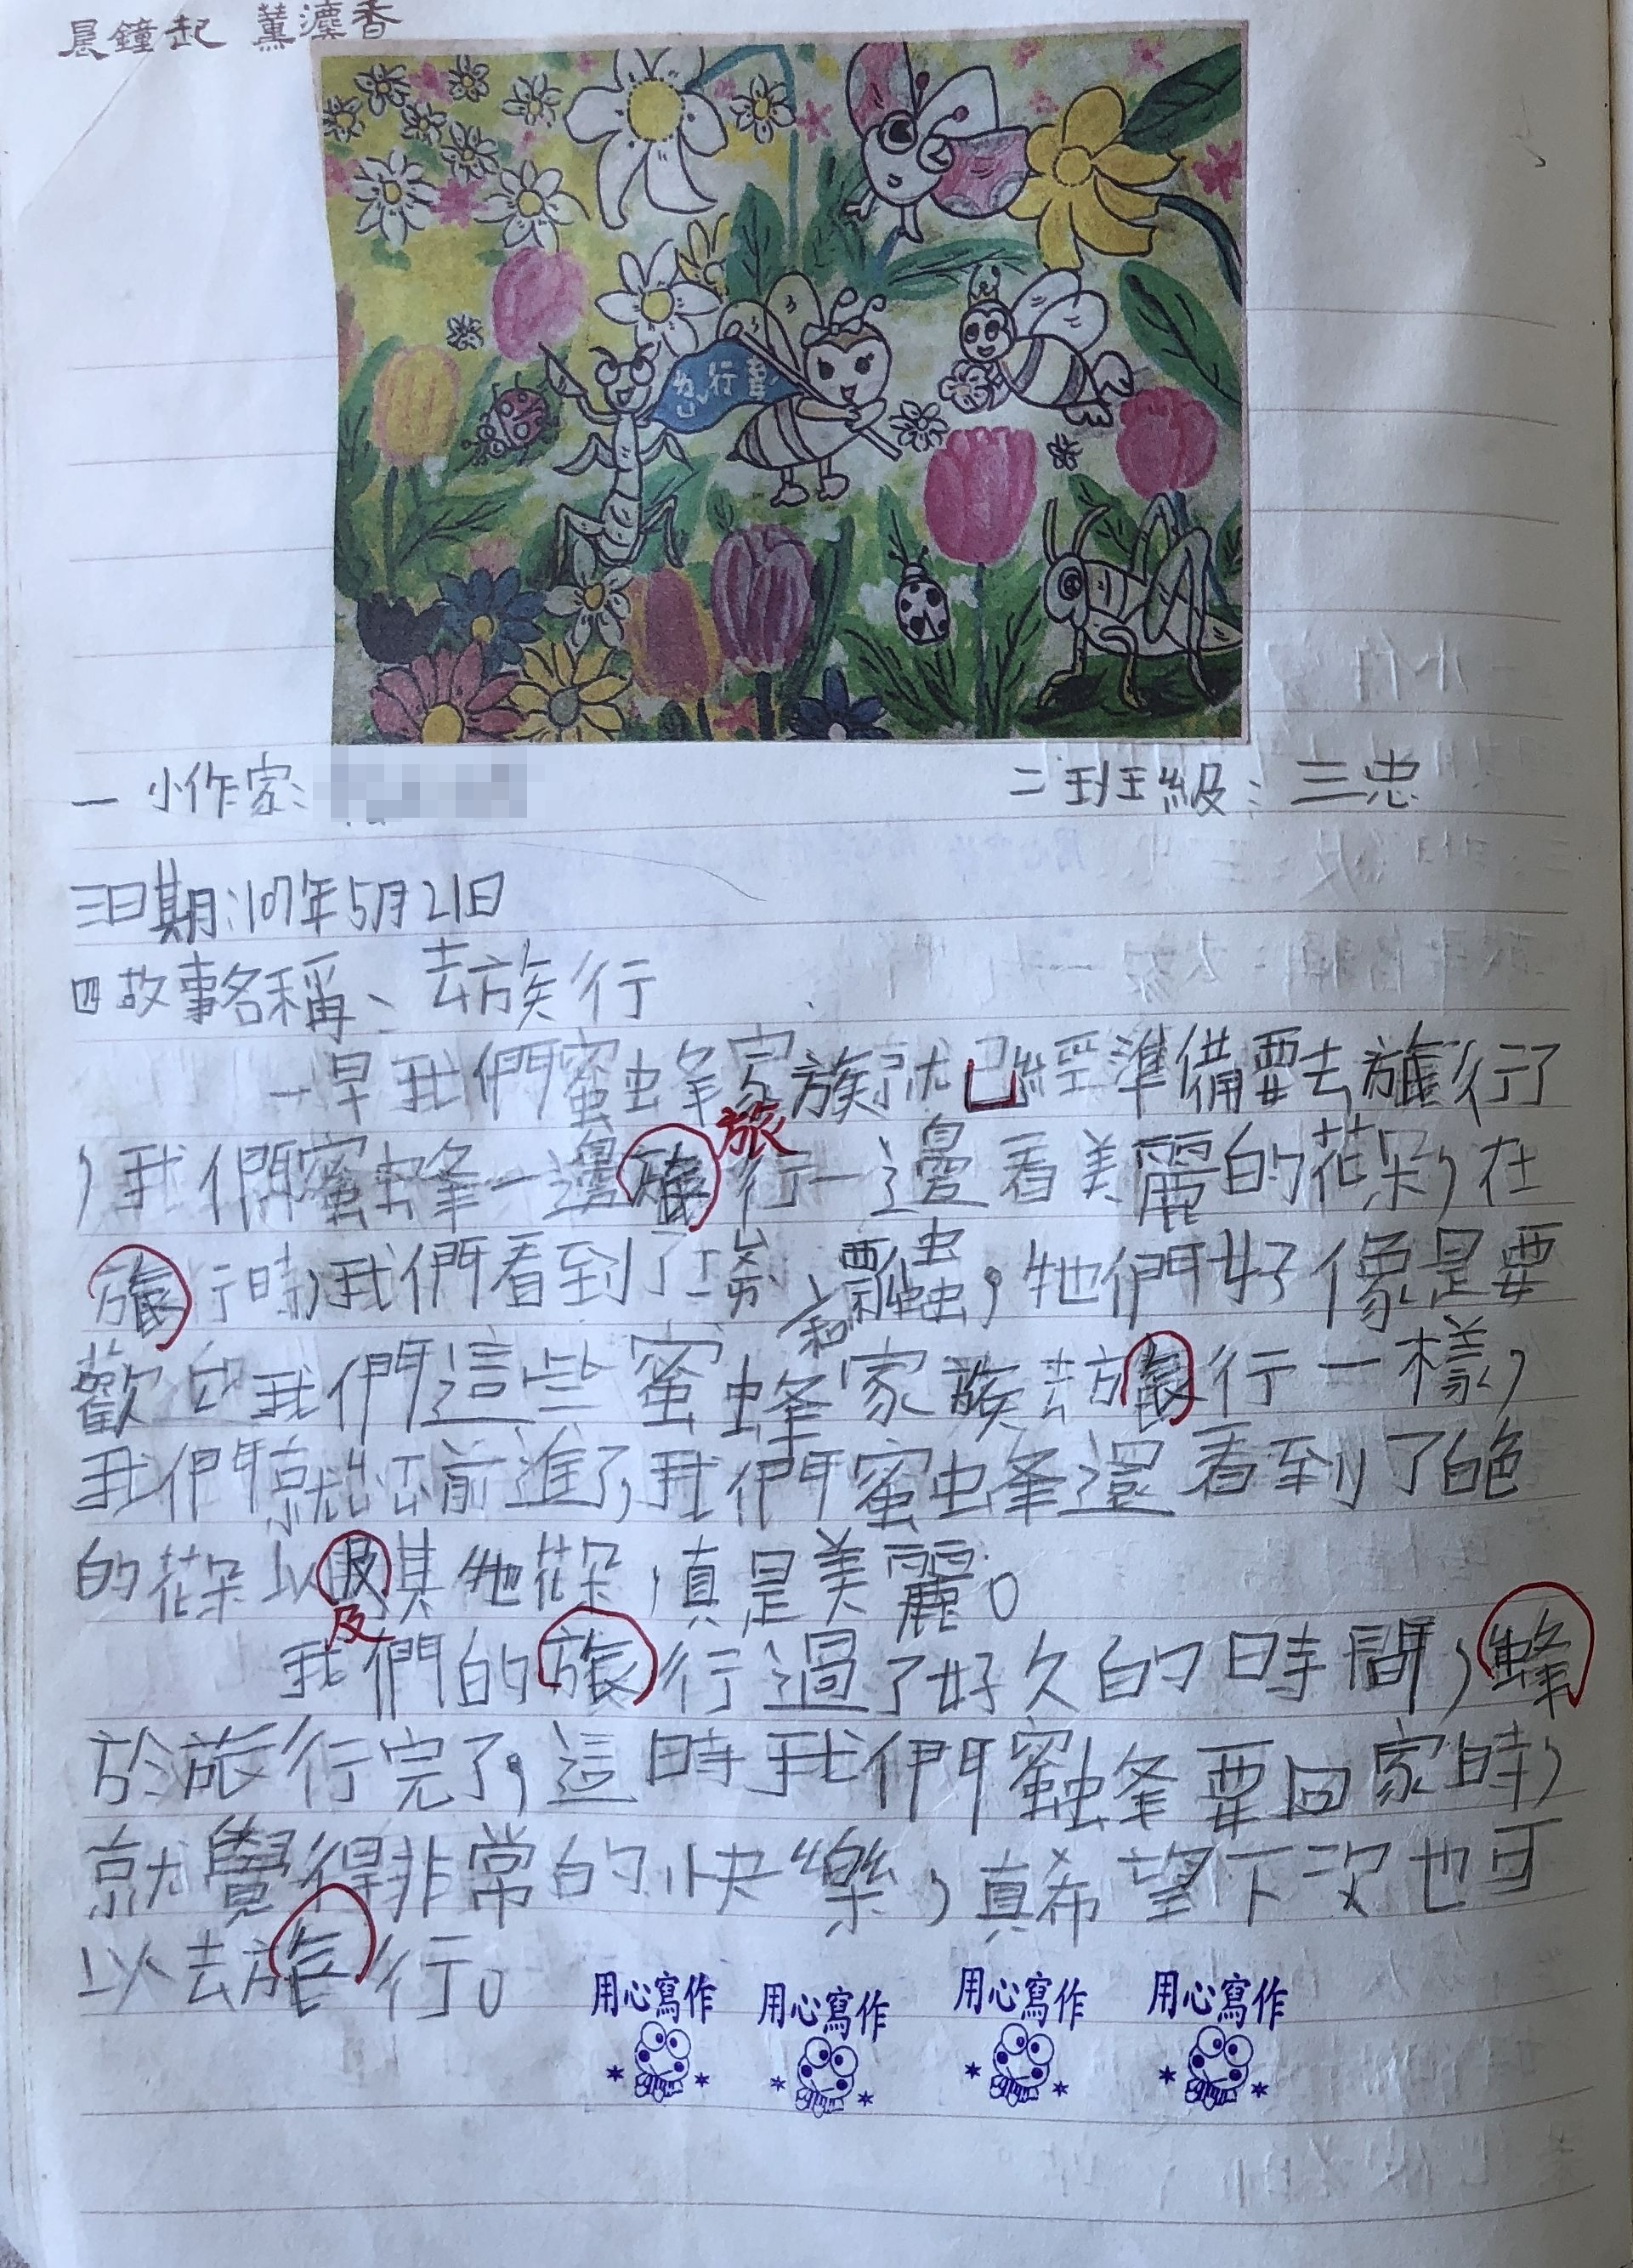 晨鐘起 薰漫香
出行曹
一 小作家:
二 班級:三忠
三日期:107年5月21日
四故事名稱、去族行
一早我們蜜蜂家族就已經準備要去旅行了
旅
,我們蜜蜂一邊旅行一邊看美麗的花朵,在
旅行時,我們看到了螳螂、和瓢蟲,牠們好像是要
歡迎我們這些蜜蜂家族去旅行一樣,
我們就出公前進了,我們蜜蜂還看到了白色
的花朵以及其他花朵,真是美麗。
及
我們的旅行過了好久的時間,蜂
於旅行完了,這時我們蜜蜂要回家時,
就覺得非常的快樂,真希望下次也可
以去旅行。
用心寫作 用心寫作 用心寫作 用心寫作